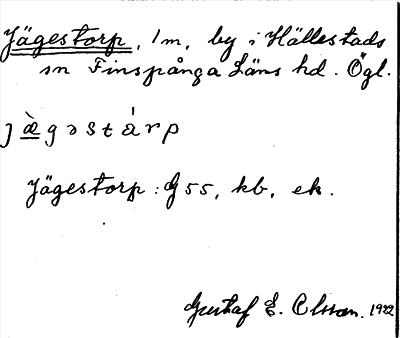 Jägestorp, 1m, by i Hällestads
sn Finspånga Läns hd. Ögl.
ȷæ̀gəstárp
Jägestorp: G 55, kb, ek.
Gustaf E. Olsson. 1922